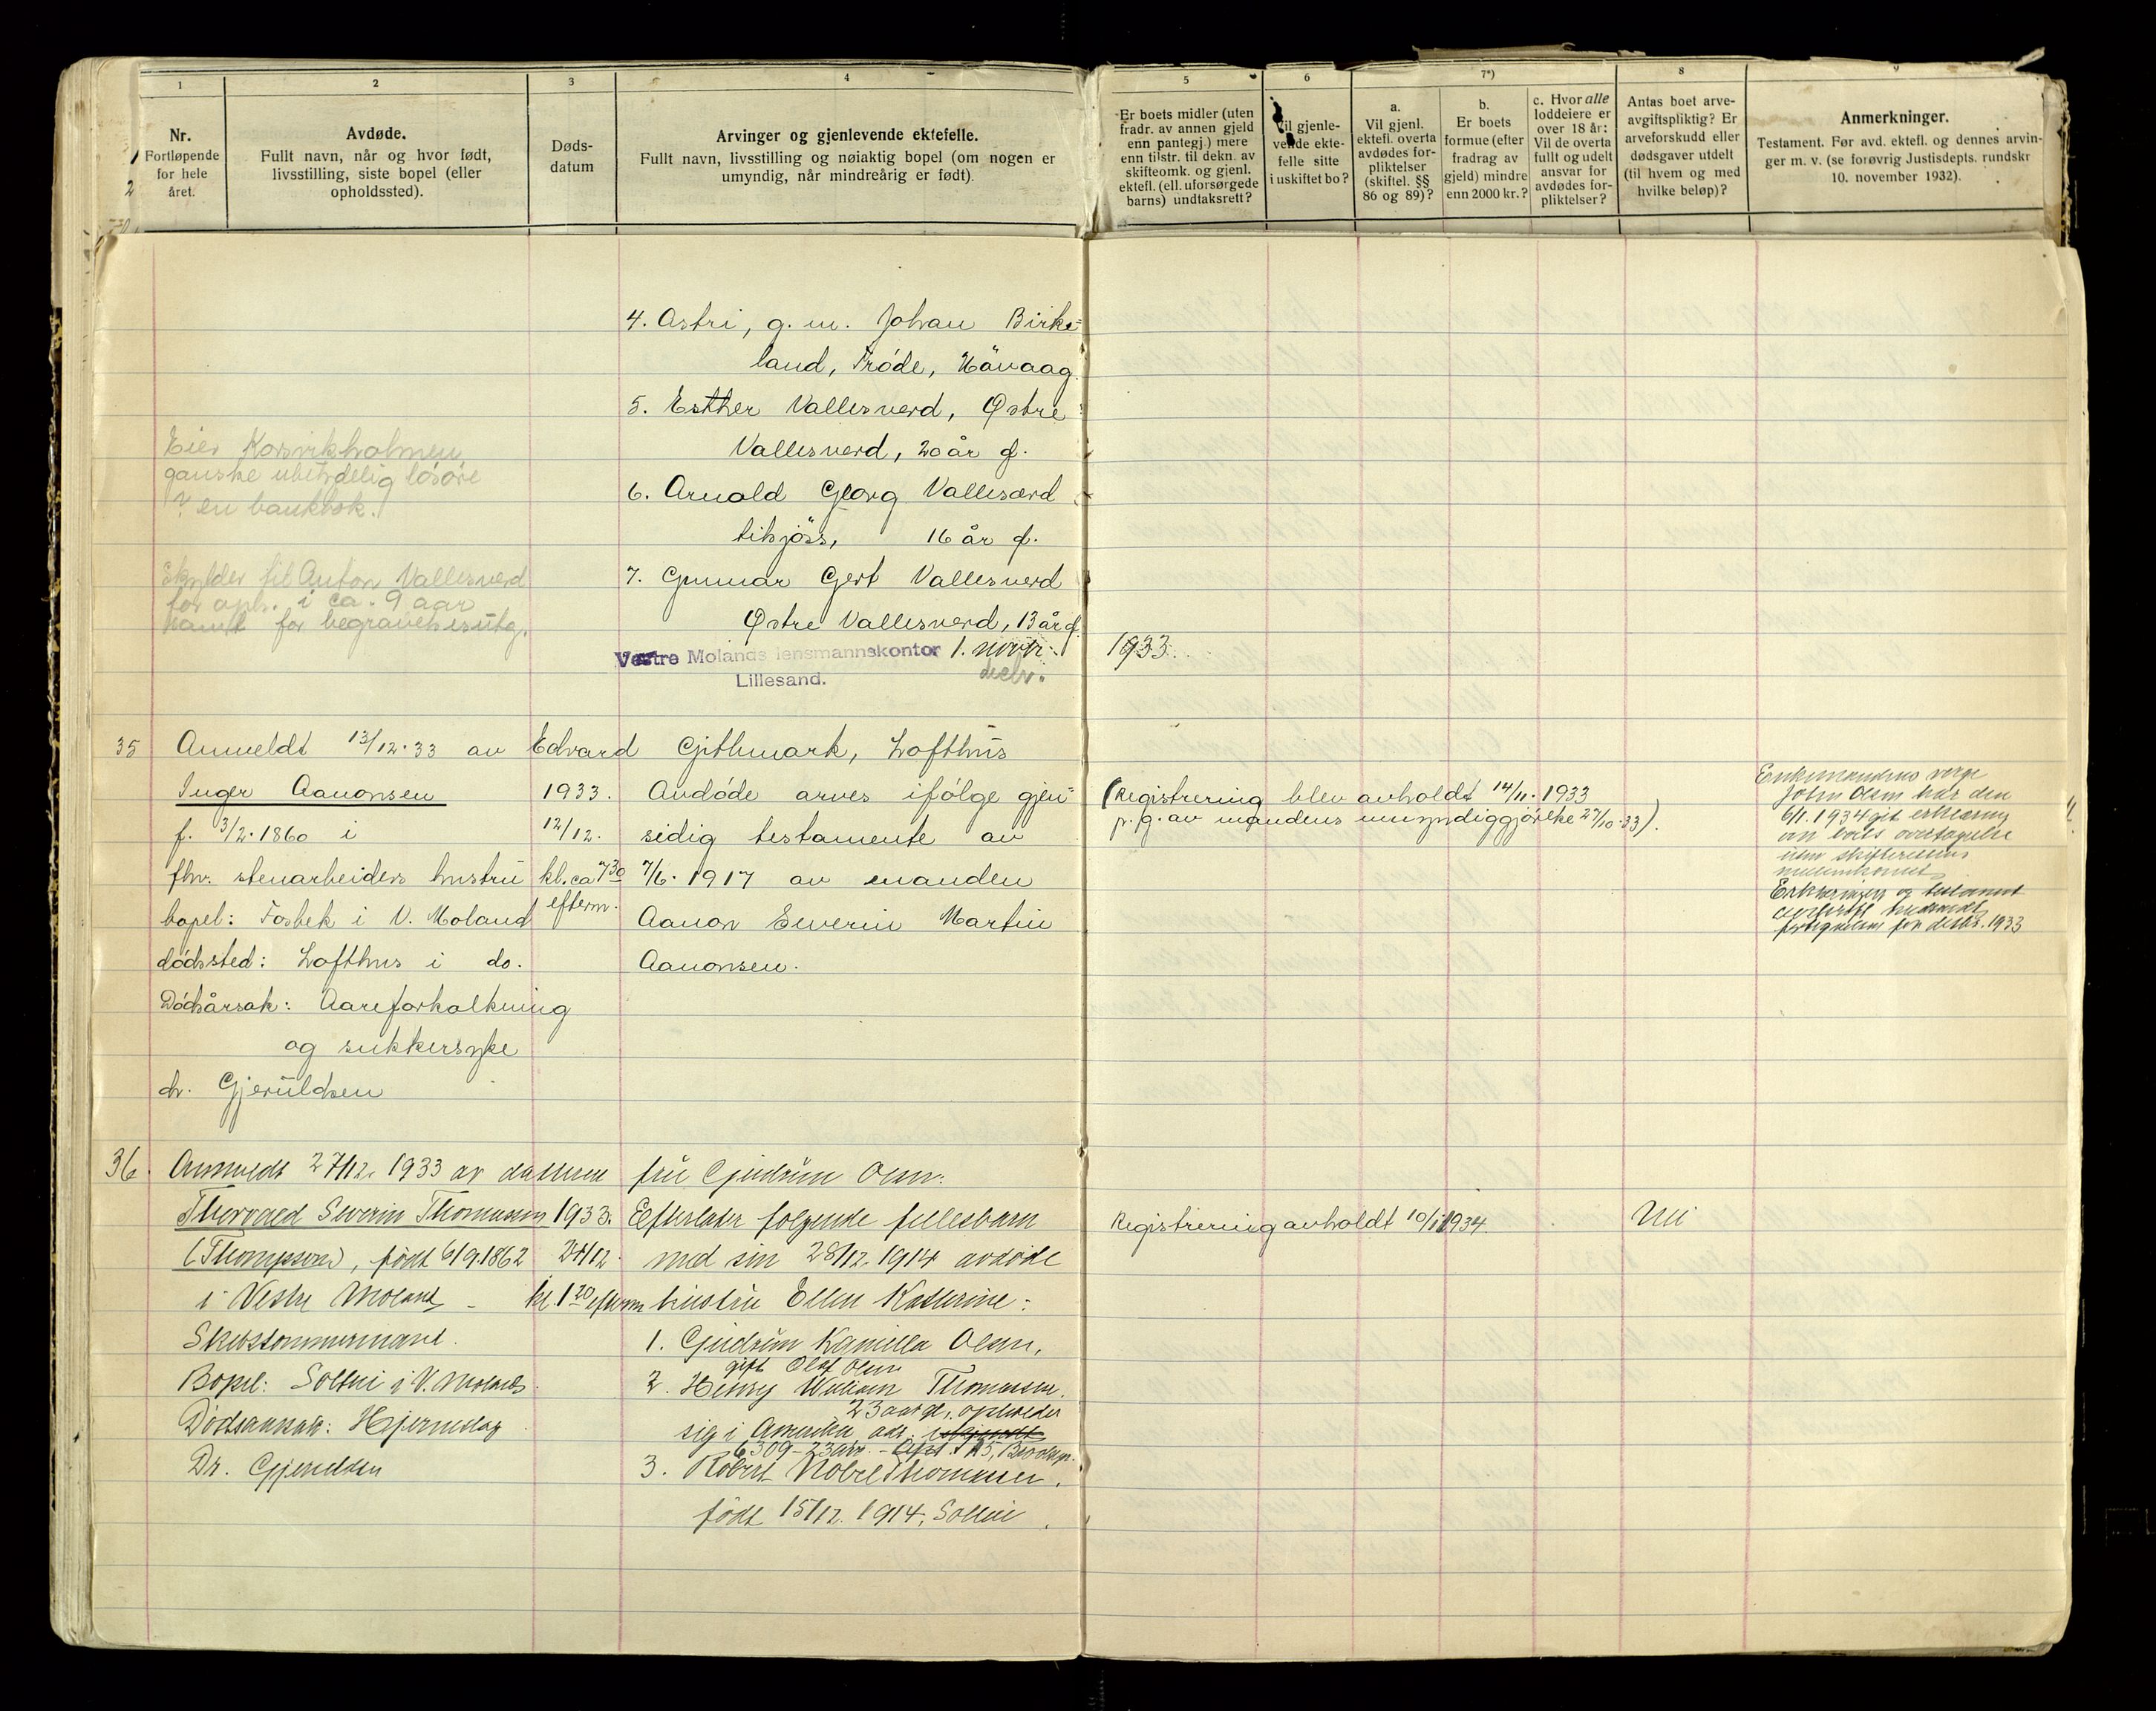 1
Nr.
Fortløpende
for hele
året.
2
Avdøde.
Fullt navn, når og hvor født,
livsstilling, siste bopel (eller
opholdssted).
3
Døds-
datum
4
Arvinger og gjenlevende ektefelle.
Fullt navn, livsstilling og nøiaktig bopel (om nogen er
umyndig, når mindreårig er født).
5
Er boets midler (uten
fradr. av annen gjeld
enn pantegj.) mere
enn tilstr. til dekn. av
skifteomk. og gjenl.
ektefl. (ell. uforsørgede
barns) undtaksrett?
6
Vil gjenle-
vende ekte-
felle sitte
i uskiftet bo?
7*)
a.
Vil gjenl.
ektefl. overta
avdødes for-
pliktelser
(skiftel. §§
86 og 89)?
b.
Er boets
formue (efter
fradrag av
gjeld) mindre
enn 2000 kr.?
c. Hvor alle
loddeiere er
over 18 år:
Vil de overta
fullt og udelt
ansvar for
avdødes for-
pliktelser?
8
Antas boet arve-
avgiftspliktig? Er
arveforskudd eller
dødsgaver utdelt
(til hvem og med
hvilke beløp)?
9
Anmerkninger.
Testament. Før avd. ektefl. og dennes arvin-
ger m. v. (se forøvrig Justisdepts. rundskr
10. november 1932).
4. Astri, g. m. Johan Birke-
land, Trøde, Høvaag.
5. Esther Vallesverd, Østre
Vallesverd, 20 år g.
6. Arnold Georg Vallesverd
tilsjøss, 16 år g.
7. Gunnar Gert Vallesverd
Østre Vallesverd, 13 år g.
Eier Korsvikholmen
ganske ubetydelig løsøre
? en bankbok.
Skylder til Anton Vallesverd
for oph. i ca. 9 aar
samt for begravelsesutg.
Vestre Molands lensmannskontor 1. novbr. 1933.
Lillesand. decbr.
35 Anmeldt 13/12.33 av Edvard Githmark, Lofthus
Inger Aanonsen
f. 3/2.1860 i
fhv. stenarbeiders hustru
bopel: Fosbek i V. Moland
dødssted: Lofthus i do.
Dødsårsak: Aareforkalkning
og sukkersyke
dr. Gjeruldsen
1933.
12/12.
kl. ca 7 30
efterm.
Avdøde arves ifølge gjen-
sidig testamente av
7/6.1917 av manden
Aanon Severin Martin
Aanonsen.
(Registrering blev avholdt 14/11.1933
p. g. av mandens umyndiggjørelse 27/10.33).
Enkemandens verge
John Olsen har den
6/1.1934 git erklæring
om boets overtagelse
uten skifterettens
mellemkomst.
Erklæringen og testament
avskrift medsendt
fortegnelsen for decbr. 1933
36. Anmeldt 27/12. 1933 av datteren fru Gudrun Olsen.
Thorvald Severin Thomassen
(Thompson), født 6/9.1862
i Vestre Moland
Skibstømmermand.
Bopel: Solteii i V. Moland.
Dødsaarsak: Hjerneslag
Dr. Gjeruldsen
1933.
kl 1 20 efterm
Efterlater følgende fellesbarn
med sin 28/12. 1914 avdøde
hustru Ellen Katherine:
1. Gudrun Kamilla Olsen,
gift Olaf Olsen
2. Henry William Thomassen.
23 aar gl., opholder
sig i Amerika, adr.
6309 - 23 ave. - Apt. A5, Brooklyn.
3. Robert Nobel Thomassen,
født 15/12. 1914,
Registrering avholdt 10/1 1934.
Nei